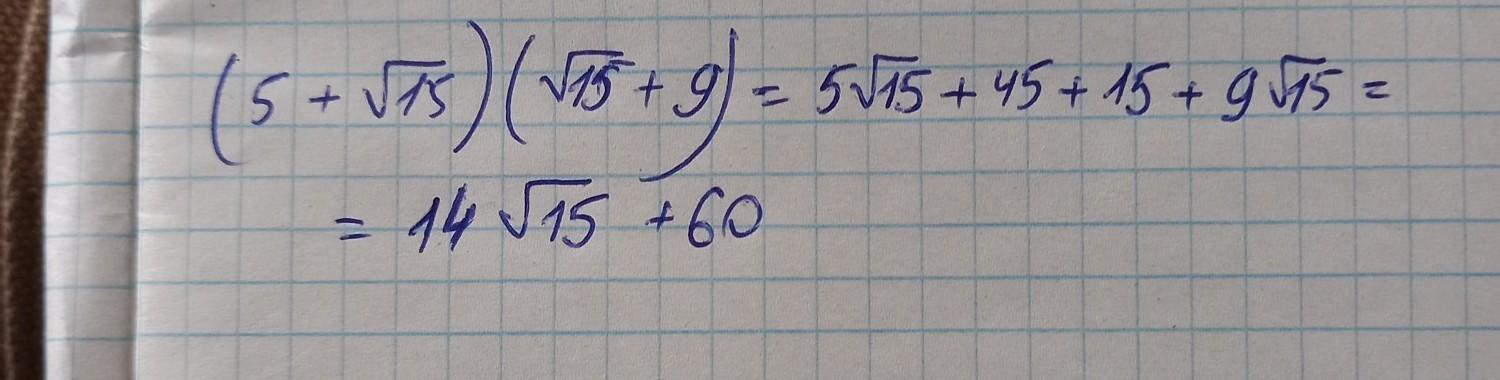 (5 + √15)(√15 + 9) = 5√15 + 45 + 15 + 9√15 =
= 14 √15 + 60